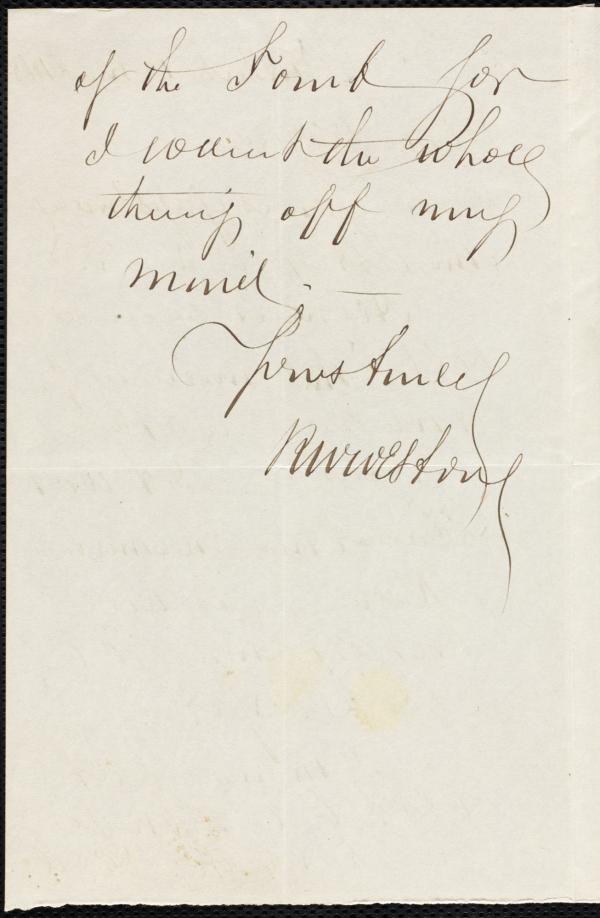 of the Tomb for
I want the whole
thing off my
mind. —
Yours truly
RWWeston